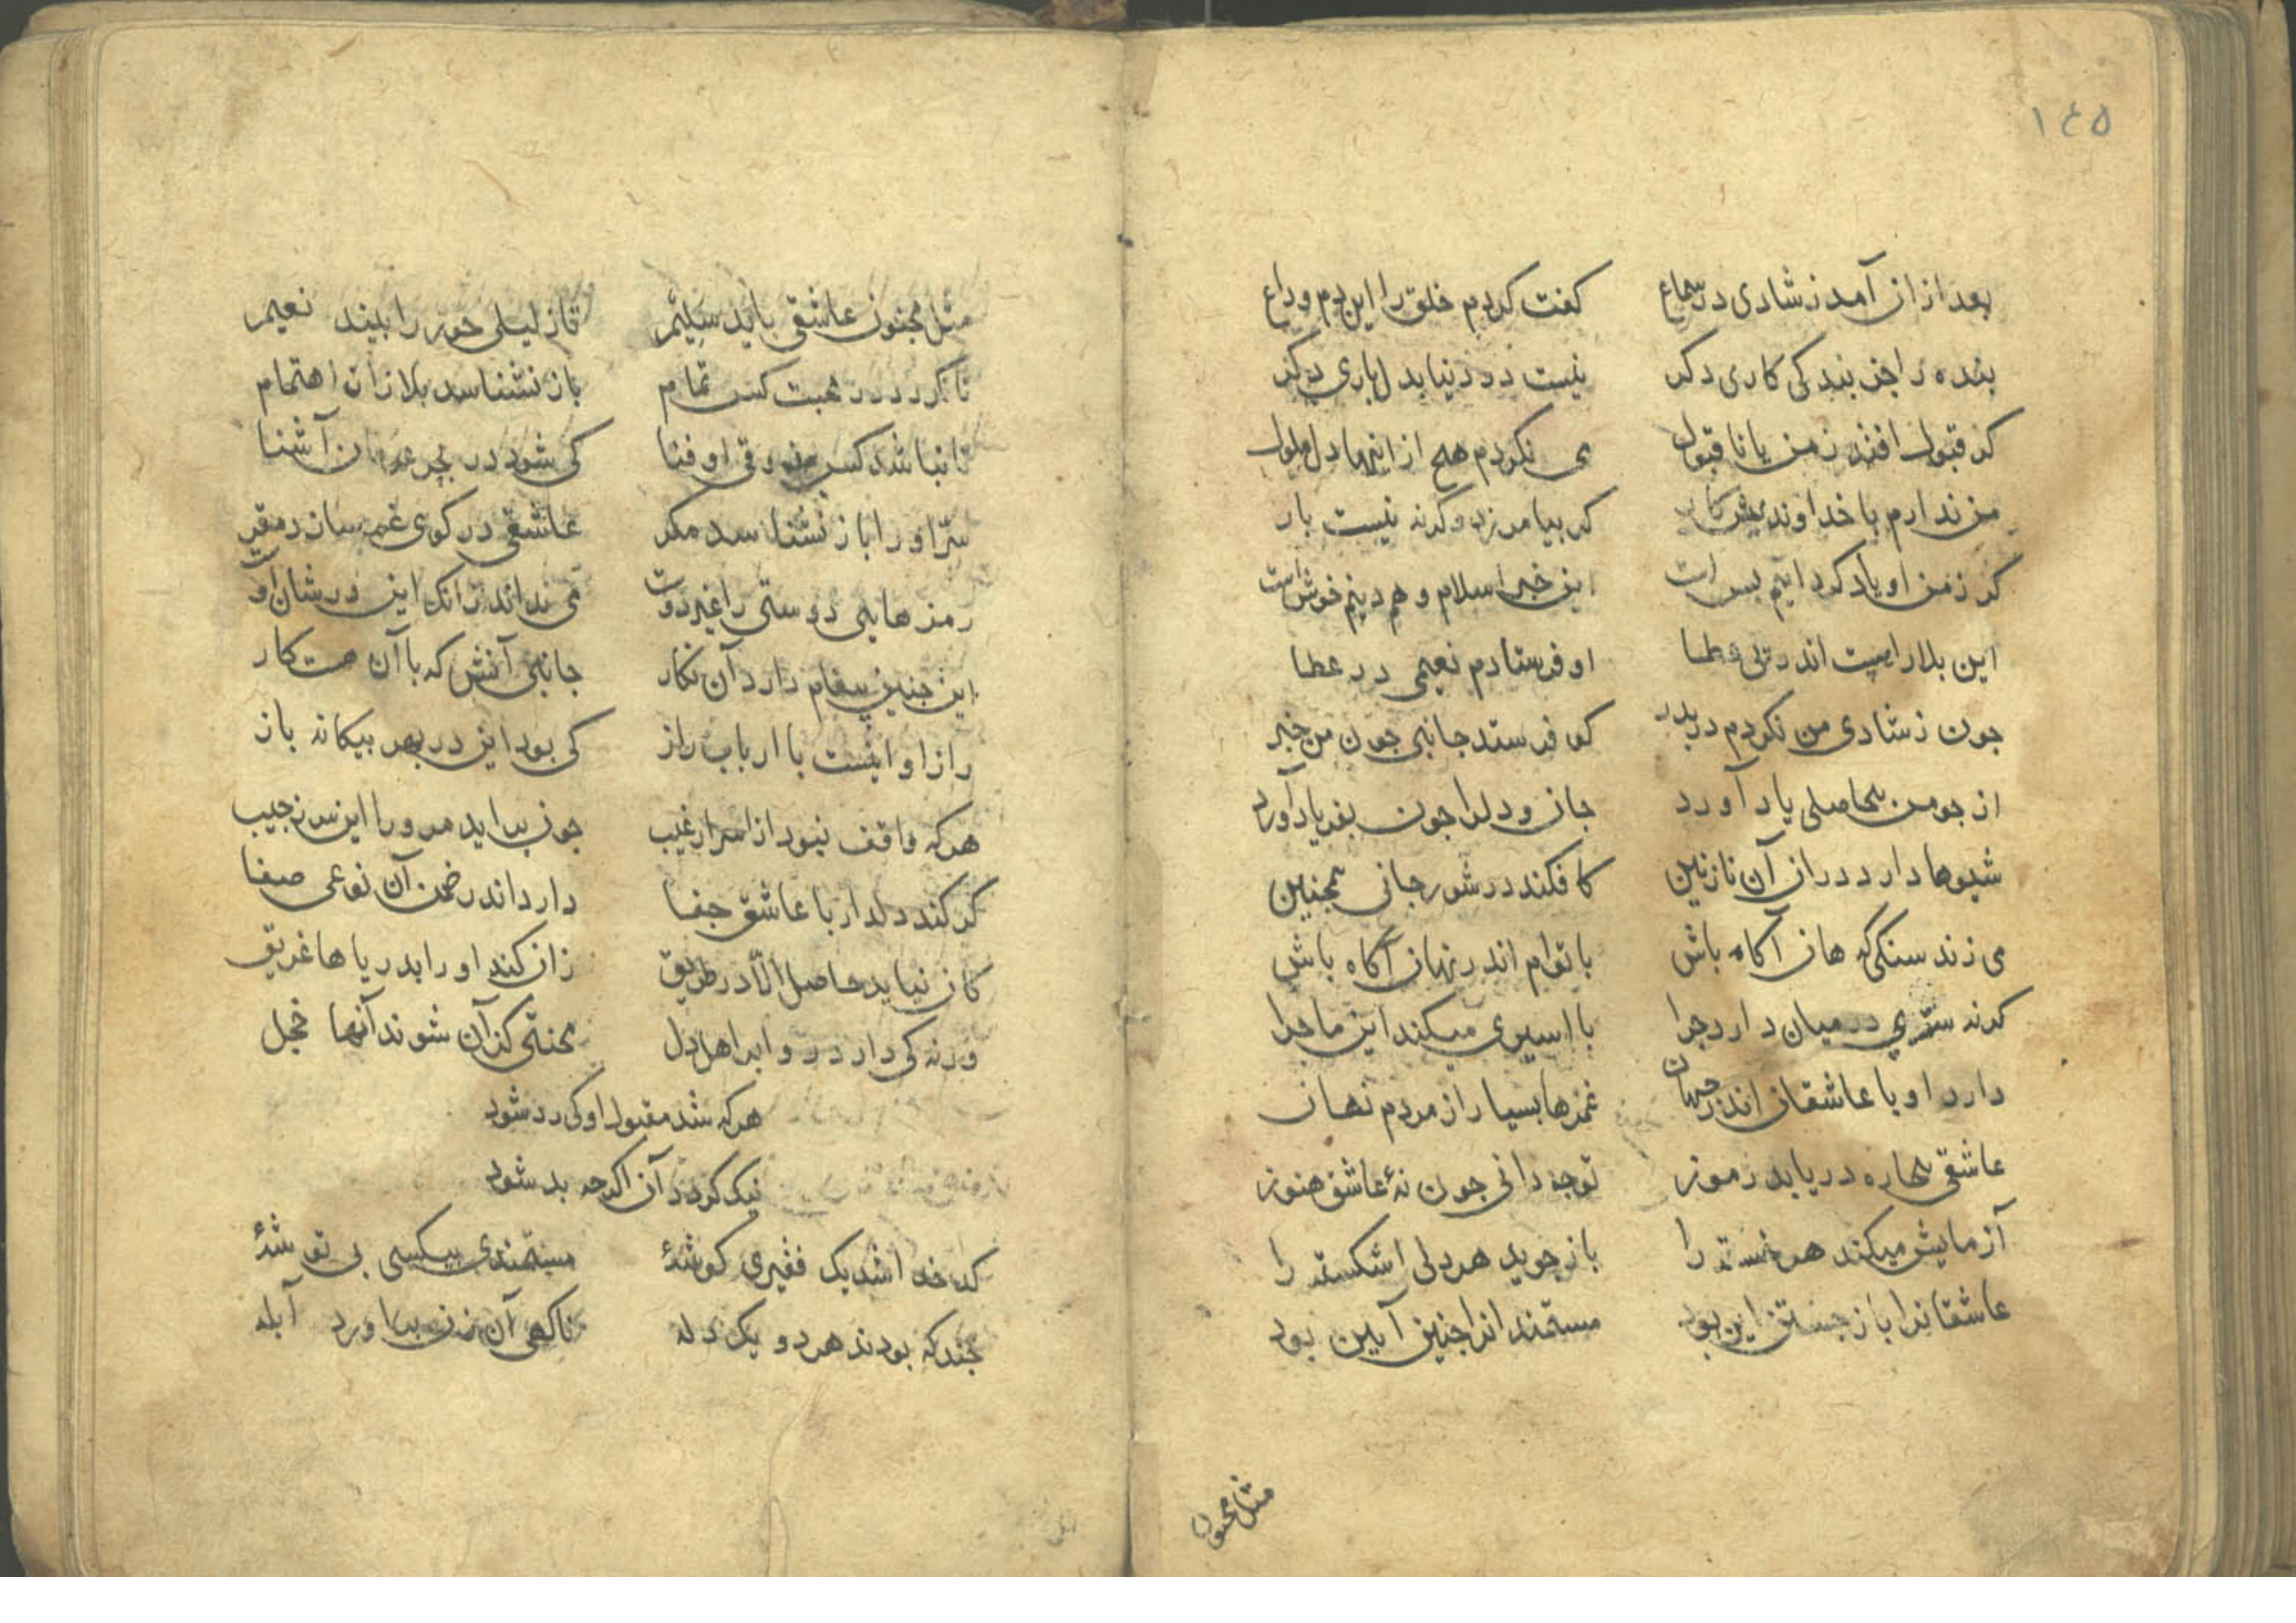 ١٤٥
بعد ازان آمد ز شادی در سماع کفت کردم خلق را این دم وداع
بنده را جز بندکی کاری دکر نیست در دنیا بدل باری دکر
کر قبول افتد ز من یا نا قبول می نکردم هیچ از اینها دل ملول
من ندارم با خداوندیش کار کر بیامرزد وکرنه نیست بار
کر ز من او یاد کرد اینم بس است این خبر اسلام و هم دینم خوش است
این بلا را اندر عطا او فرستادم نعیمی در عطا
جون ز شادی من نکردم دربدر کو فرستد جانبی جون من خبر
از جو من بیحاصلی یاد آورد جان و دلرا جون بفریاد آورد
شیوها دارد دران آن نازنین کافکند در شور جانی همجنین
می زند سنکی که هان آکاه باش با توام اندر نهان آکاه باش
کرنه ستری درمیان دارد جرا با اسیری میکند این ماجرا
دارد او با عاشقان اندر جهان غمزها بسیار از مردم نهان
عاشقی بیجاره دریابد رموز تو جه دانی جون نهٔ عاشق هنوز
آزمایش میکند هر خسته را باز جوید هر دلی اشکسته را
عاشقانرا باز جستن این بود مستمندانرا جنین آیین بود
مثل مجنون
مثل مجنون عاشقی باید سلیم تاز لیلی جور را بیند نعیم
تا نکردد در محبت کس تمام باز نشناسد بلا زان اهتمام
تا نباشد کس او فنا کی شود در بحر آشنا
سر او را باز نشناسد مکر عاشقی در کوی غم سازد مقر
رمزهایی دوستی را غیر دوست می نداند زانک این در شان اوست
این جنین پیغام دارد آن نکار جانبی آنش که با آن هست کار
راز او اینست با ارباب راز کی بود این در بهر بیکانه باز
هرکه واقف نبود از اسرار غیب جون سراید مرورا این سر ز جیب
کر کند دلدار با عاشق جفا دارد اندر ضمن آن نوعی صفا
کان نیاید حاصل الا در طریق زان کند او را بدریاها غریق
ورنه کی دارد روا بر اهل دل محنتی کز آن شوند آنها خجل
هرکه شد مقبول او کی رد شود
نیک کردد آن اکرجه بد شود
کدخدا شد یک فقیری کوشهٔ مستمندی بیکسی بی توشهٔ
جندکه بودند هردو یک دله ناکهی آن زن بیاورد آبله